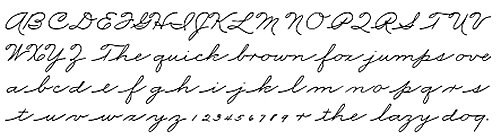 A B C D E F G H I J K L M N O P Q R S T U V
W X Y Z The quick brown fox jumps ove
a b c d e f g h i j k l m n o p q r s
t u v w x y z 1 2 3 4 5 6 7 8 9 + the lazy dog.